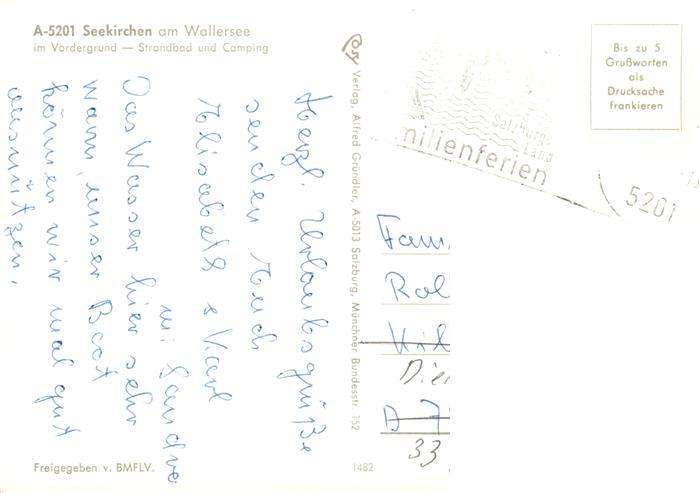 A-5201 Seekirchen am Wallersee
im Vordergrund — Strandbad und Camping
Herzl. Urlaubsgrüße
senden Euch
Elisabeth & Karl
m. Sandra
Das Wasser hier sehr
warm, unser Boot
können wir mal gut
ausnützen.
Verlag, Alfred Gründler, A-5013 Salzburg, Münchner Bundesstr. 152
Bis zu 5
Grußworten
als
Drucksache
frankieren
Salzburger
Land
milienferien
5201
Fam.
Rol
Die
D 7
33
Freigegeben v. BMFLV.
1482